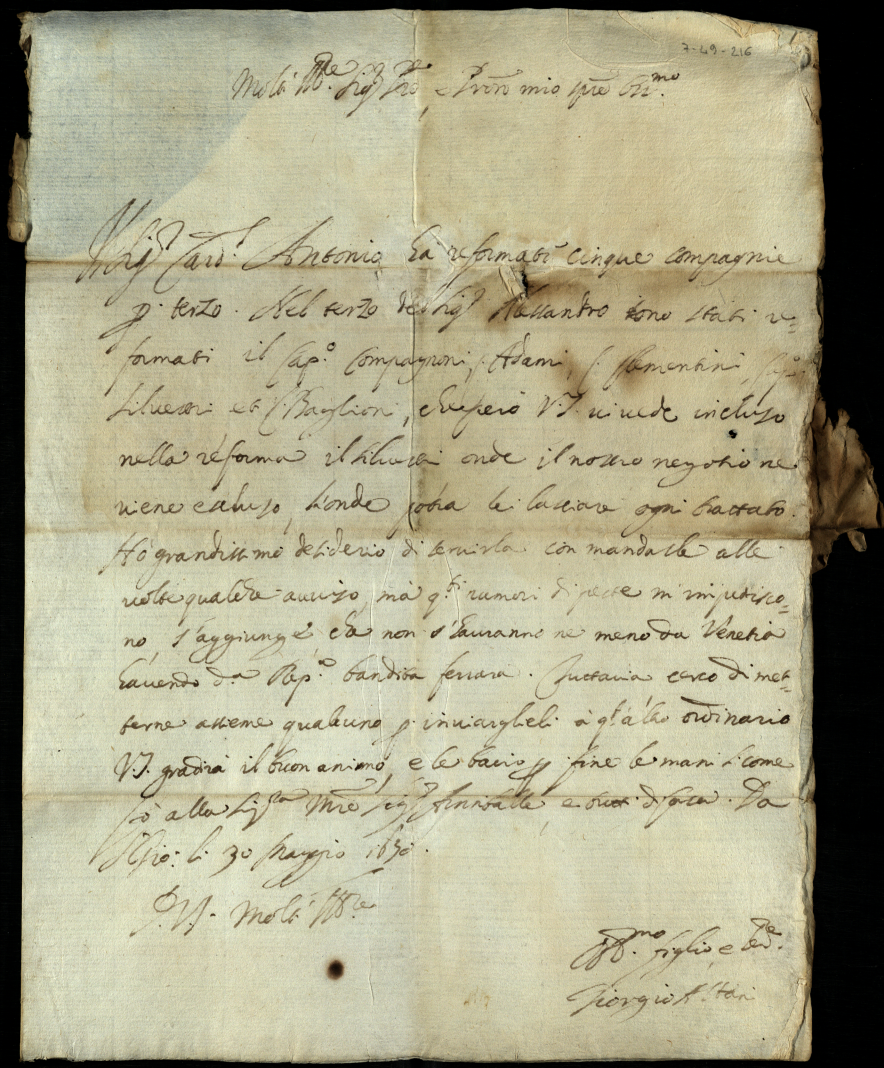 7-49-216
Molt' Ill.re Sig.r P̃re e P̃ron mio sp̃re Oss.mo
Il Sig.r Card.l Antonio ha reformati cinque compagnie
p. terzo. Nel terzo del Sig.r Alessandro sono stati re=
formati il Cap.o Compagnoni, C. Adami, C. Clementini, Cap.o
Siluestri et C. Baglioni, che però V.S. ui uede incluso
nella réforma il Siluestri onde il nostro negotio ne
viene escluso, s'onde potrà lei lasciare ogni trattato.
Hò grandissimo desiderio di seruirla con mandarle alle
uolte qualche auuiso, mà q.ti rumori di peste m'impedisco=
no, s'aggiunge che non s'hauranno ne meno da Venetia
hauendo d.a Rep.a bandita ferrara. Tuttauia cerco di met=
terne assieme qualcuno p inuiarglieli à q.to altro ordinario
V.S. gradirà il buon animo, e le bacio p fine le mani si come
fò alla Sig.ra M̃re Sig.r Annibale, e tutti di casa. Da
li 30 Maggio 1630.
D.V.S. Molt' Ill.re
Obb.mo figlio, e Ser.e
Giorgio